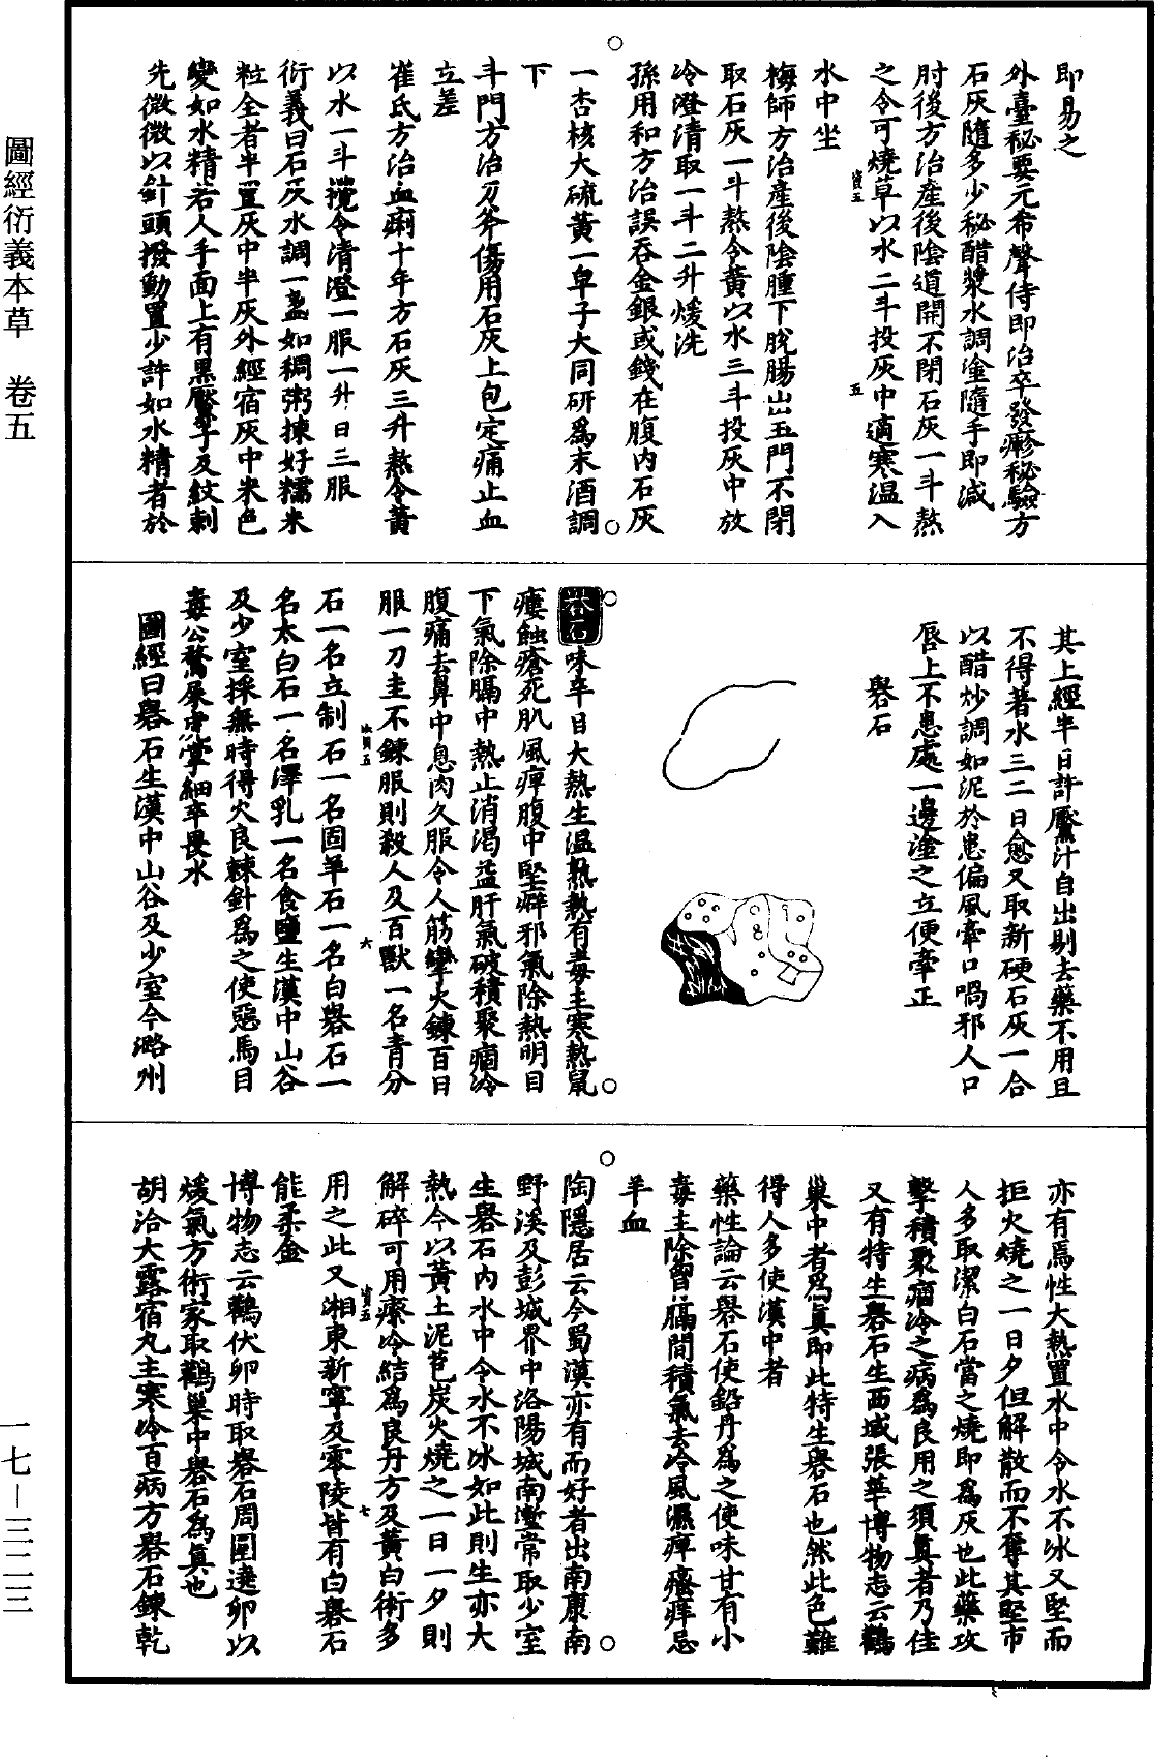 圖經衍義本草　卷五
一七―三二三
即易之
外臺秘要元希聲侍郎治卒發瘮秘驗方
石灰隨多少秘醋漿水調塗隨手即減
肘後方治產後陰道開不閉石灰一斗熬
之令可燒草以水二斗投灰中適寒温入
水中坐
梅師方治產後陰腫下脫腸出玉門不閉
取石灰一斗熬令黃以水三斗投灰中放
冷澄清取一斗二升煖洗
孫用和方治誤吞金銀或錢在腹內石灰
一杏核大硫黃一皁子大同研爲末酒調
下
斗門方治刀斧傷用石灰上包定痛止血
立差
崔氏方治血痢十年方石灰三升熬令黃
以水一斗攪令清澄一服一升日三服
衍義曰石灰水調一盞如稠粥揀好糯米
粒全者半置灰中半灰外經宿灰中米色
變如水精若人手面上有黑黶子及紋刺
先微微以針頭撥動置少許如水精者於
其上經半日許黶汁自出剔去藥不用且
不得著水三二日愈又取新硬石灰一合
以醋炒調如泥於患偏風牽口喎邪人口
唇上不患處一邊塗之立便牽正
礜石
礜石味辛甘大熱生温熟熱有毒主寒熱鼠
瘻蝕瘡死肌風痺腹中堅癖邪氣除熱明目
下氣除膈中熱止消渴益肝氣破積聚痼冷
腹痛去鼻中息肉久服令人筋攣火鍊百日
服一刀圭不鍊服則殺人及百獸一名青分
石一名立制石一名固羊石一名白礜石一
名太白石一名澤乳一名食鹽生漢中山谷
及少室採無時得火良棘針爲之使惡馬目
毒公鶩屎虎掌細辛畏水
圖經曰礜石生漢中山谷及少室今潞州
亦有焉性大熱置水中令水不冰又堅而
拒火燒之一日夕但解散而不奪其堅市
人多取潔白石當之燒即爲灰也此藥攻
擊積聚痼冷之病爲良用之須真者乃佳
又有特生礜石生西域張華博物志云鸛
巢中者爲真即此特生礜石也然此色難
得人多使漢中者
藥性論云礜石使鉛丹爲之使味甘有小
毒主除胷膈間積氣去冷風濕痺瘙痒忌
羊血
陶隱居云今蜀漢亦有而好者出南康南
野溪及彭城界中洛陽城南壍常取少室
生礜石內水中令水不冰如此則生亦大
熱今以黃土泥苞炭火燒之一日一夕則
解碎可用療冷結爲良丹方及黃白術多
用之此又湘東新寧及零陵皆有白礜石
能柔金
博物志云鸛伏卵時取礜石周圍遶卵以
煖氣方術家取鸛巢中礜石爲真也
胡洽大露宿丸主寒冷百病方礜石鍊乾